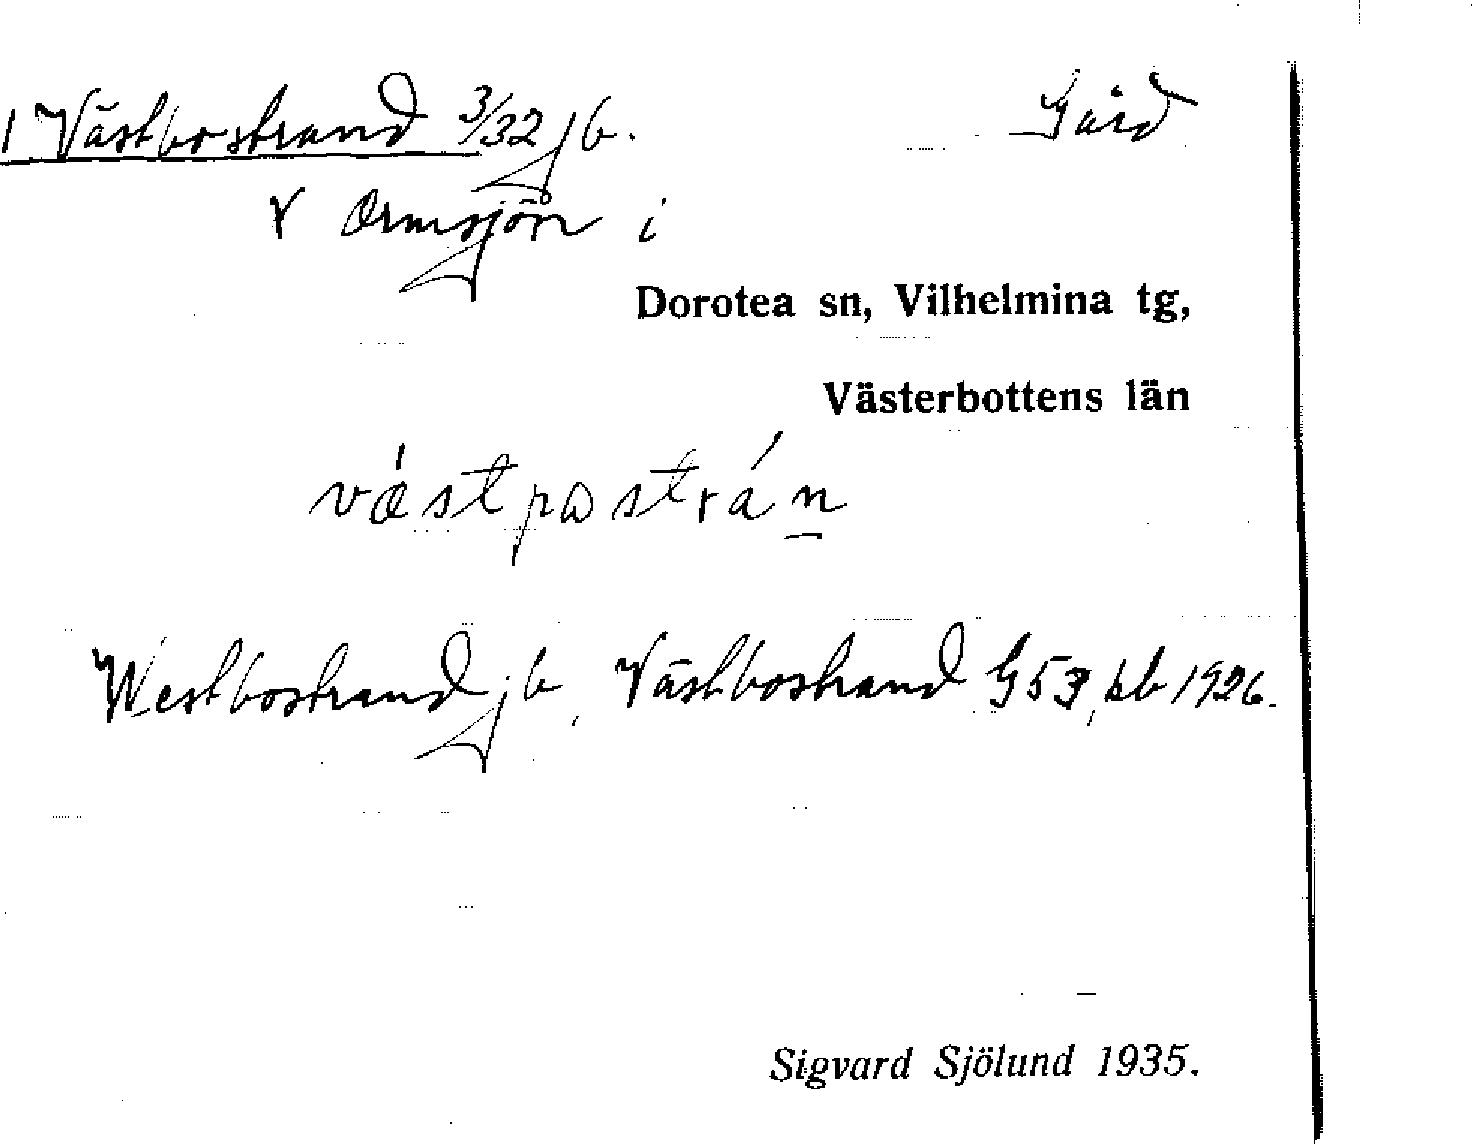 1 Västbostrand 3/32 jb. Gård
V Ormsjön i
Dorotea sn, Vilhelmina tg,
Västerbottens län
Westbostrand jb, Västbostrand G53, kb 1926.
Sigvard Sjölund 1935.